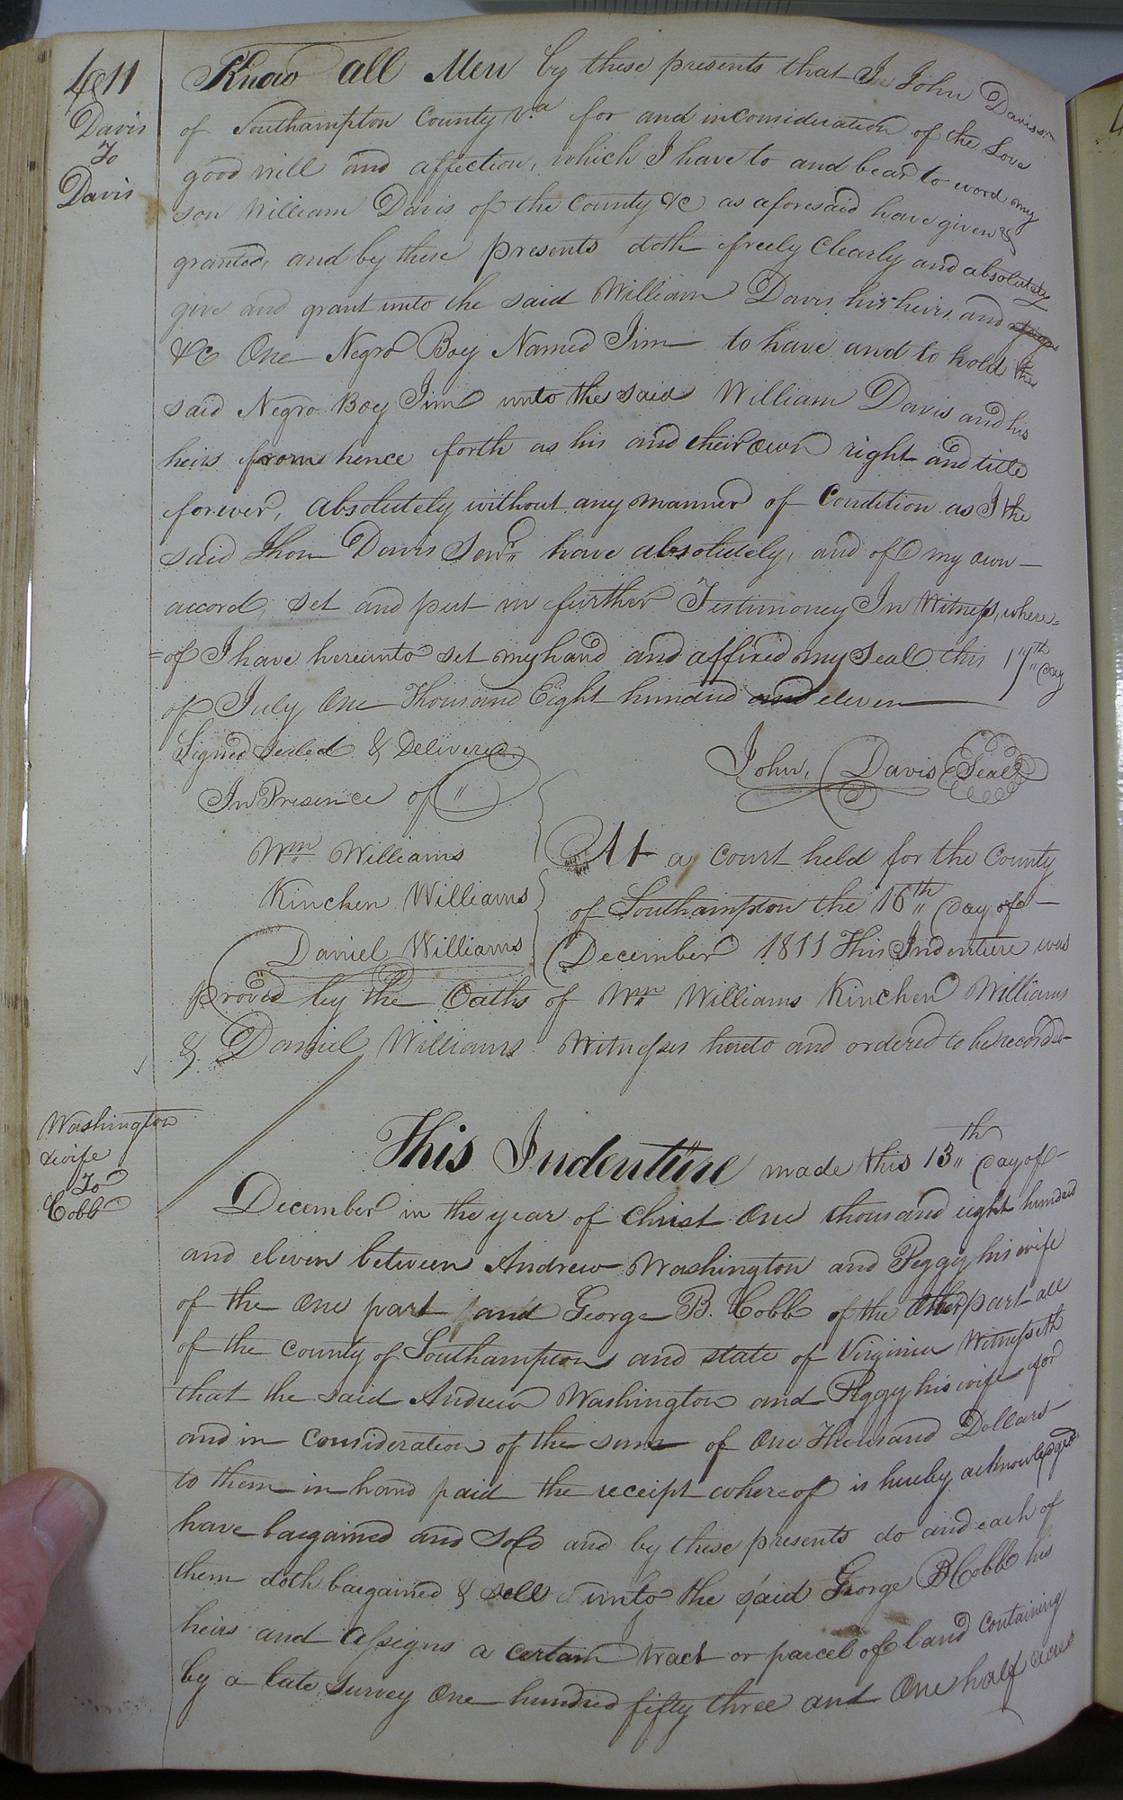 411
Davis
To
Davis
Know all Men by these presents that I John Davis senr
of Southampton County Va for and inconsideration of the Love
good will and affection, which I have to and bear to word my
son William Davis of the County &c as aforesaid have given &
granted, and by these presents doth freely Clearly and absolutely
give and grant unto the said William Davis his heirs and assigns
&c One Negro Boy Named Jim to have and to hold the
said Negro Boy Jim unto the said William Davis and his
heirs from hence forth as his and their own right and title
forever, absolutely without any manner of Condition as I the
said Jhon Davis Senr have absolutely, and of my own
accord, set and put in further Testimoney In Witness, where=
=of I have hereunto set my hand and affixed my seal this 17th day
of July One Thousand Eight hundred and eleven
Signed Sealed & Delivered
In Presence of
John, Davis Seal
Wm Williams
Kinchen Williams
Daniel Williams
At a Court held for the County
of Southampton the 16th day of
December 1811 This Indenture was
proved by the Oaths of Wm Williams Kinchen Williams
& Daniel Williams Witnesses hereto and ordered to be recorded
Washington
& wife
To
Cobb
This Indenture made this 13th day of
December in the year of Christ One thousand eight hundred
and eleven between Andrew Washington and Peggy his wife
of the One part and George B. Cobb of the Other part all
of the County of Southampton and state of Virginia Witnesseth
that the said Andrew Washington and Peggy his wife for
and in Consideration of the sum of One Thousand Dollars
to them in hand paid the receipt whereof is hereby acknowledged
have bargained and Sold and by these presents do and each of
them doth bargained & sell unto the said George B Cobb his
heirs and Assigns a certain tract or parcel of land containing
by a late survey One hundred fifty three and One half acres